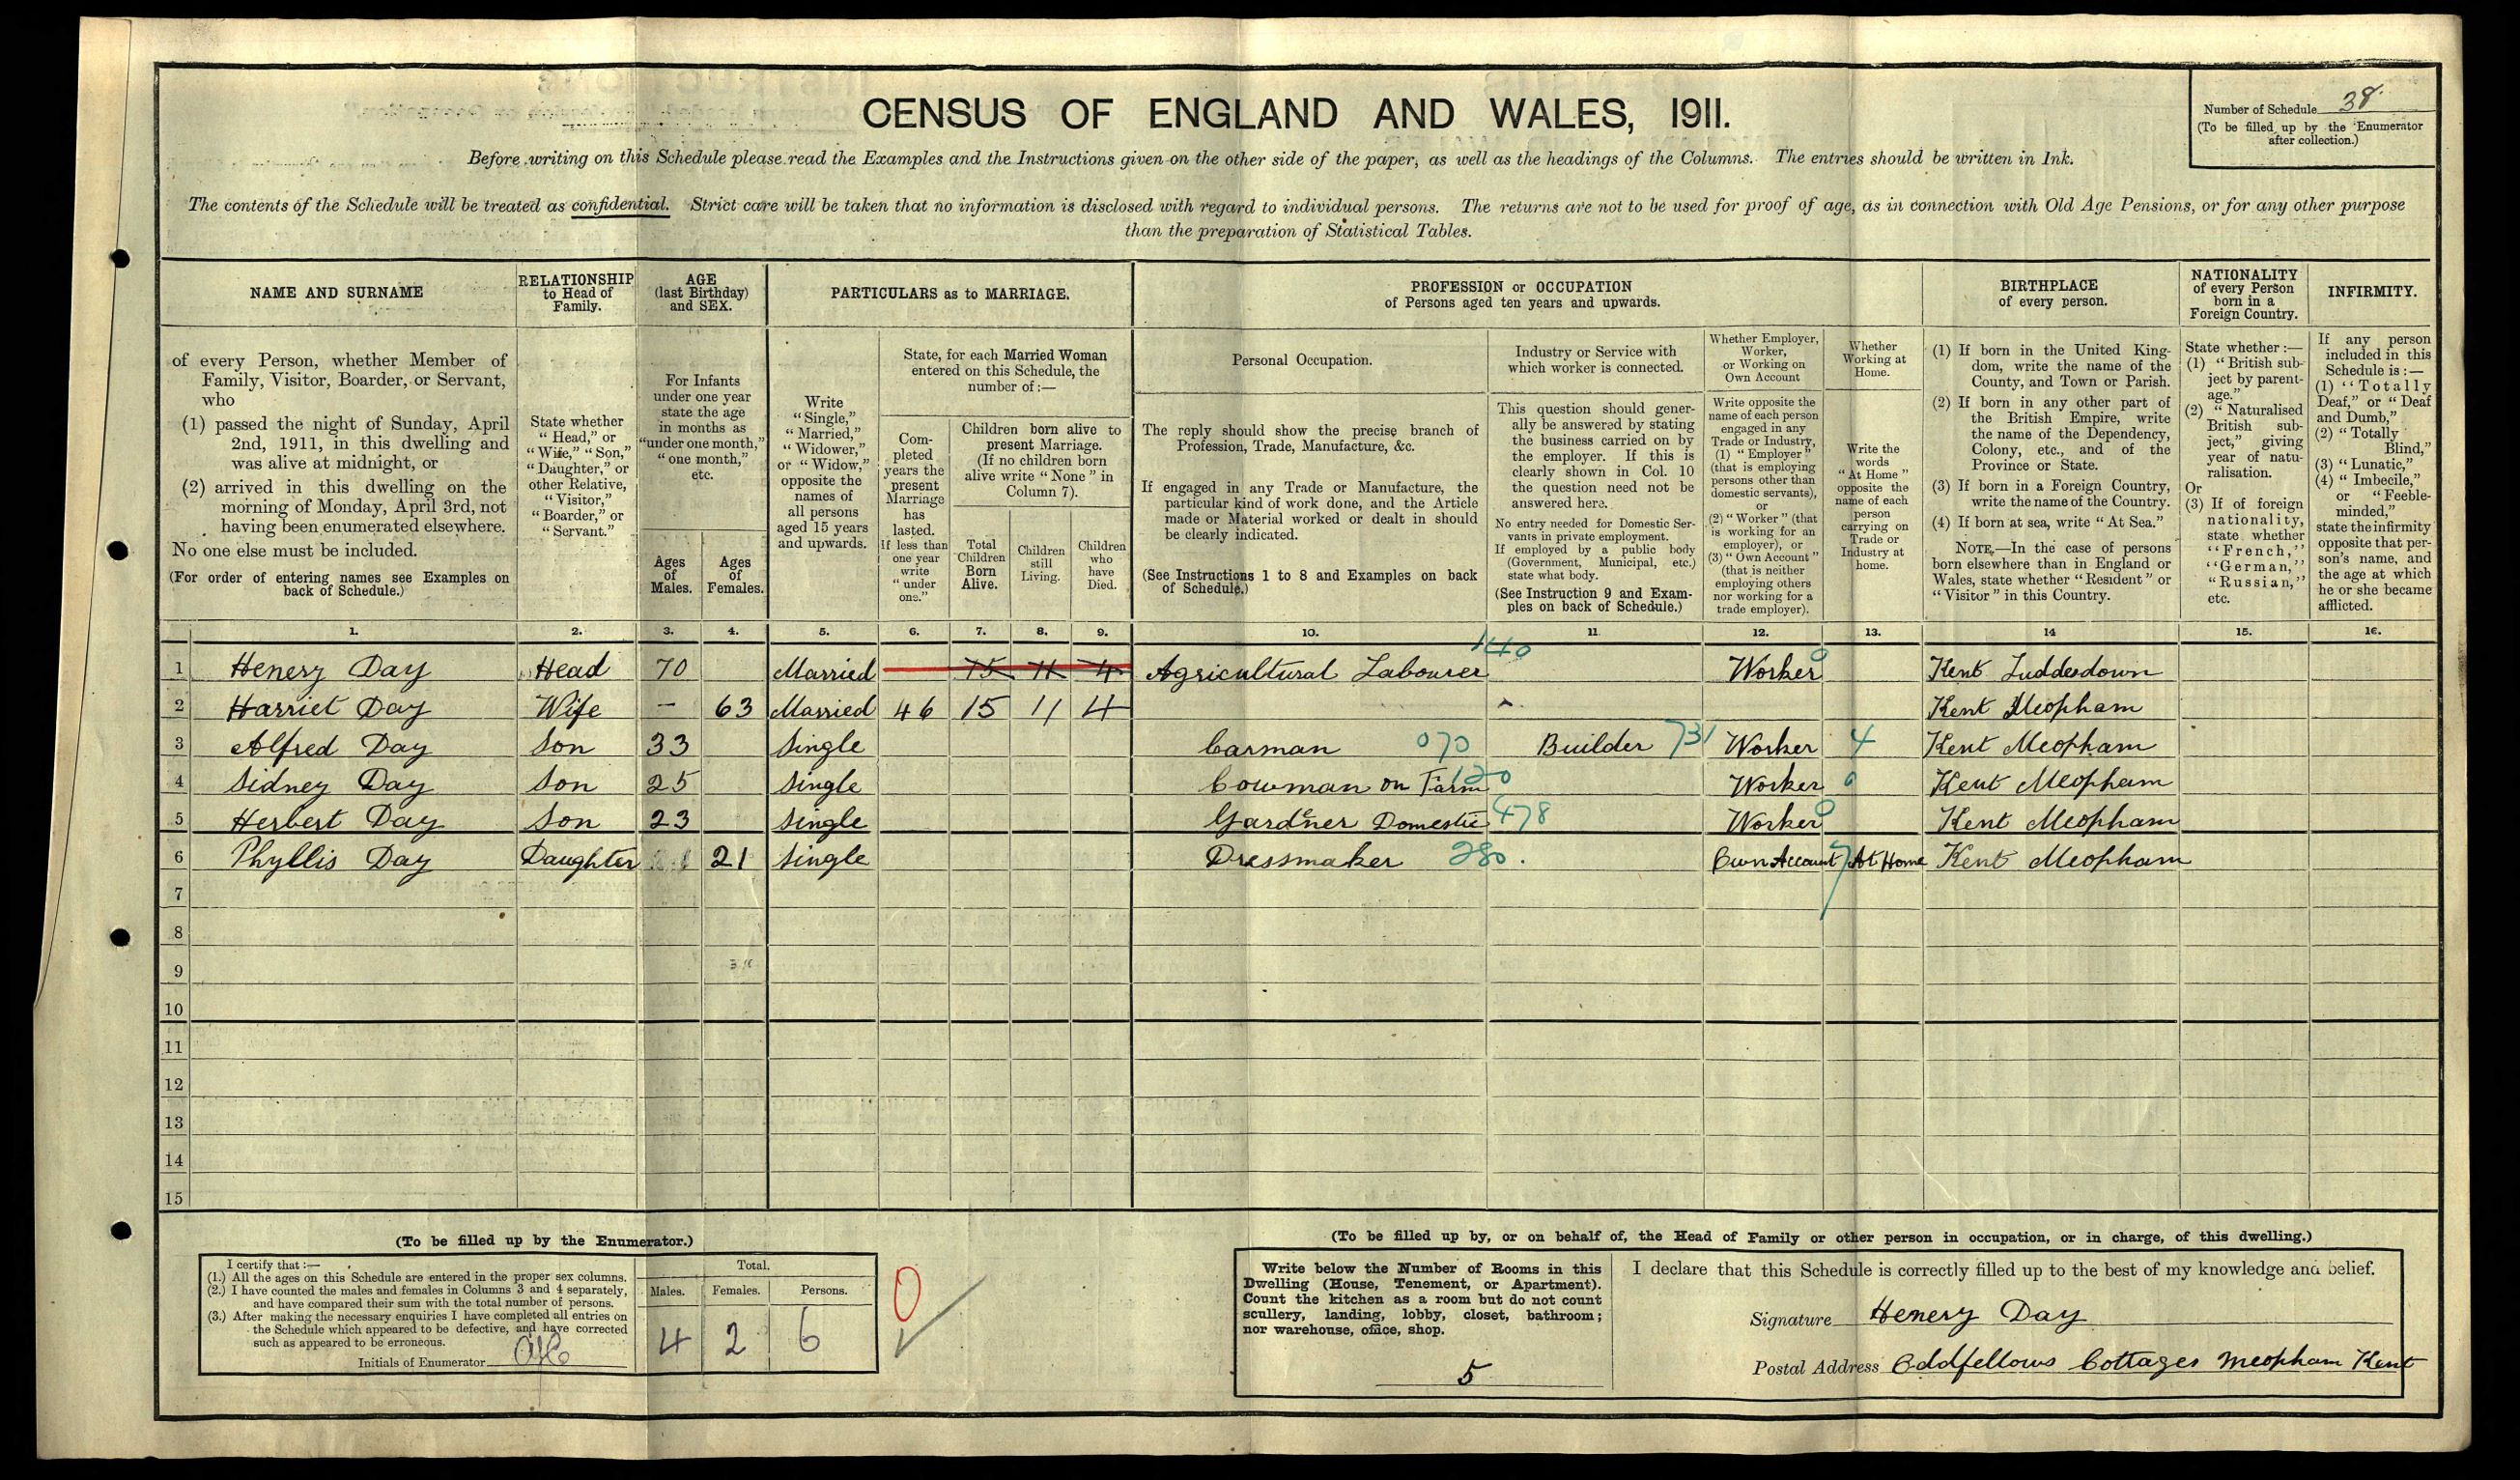 CENSUS OF ENGLAND AND WALES, 1911.
Number of Schedule 38
(To be filled up by the Enumerator
after collection.)
Before writing on this Schedule please read the Examples and the Instructions given on the other side of the paper, as well as the headings of the Columns. The entries should be written in Ink.
The contents of the Schedule will be treated as confidential. Strict care will be taken that no information is disclosed with regard to individual persons. The returns are not to be used for proof of age, as in connection with Old Age Pensions, or for any other purpose
than the preparation of Statistical Tables.
NAME AND SURNAME
of every Person, whether Member of
Family, Visitor, Boarder, or Servant,
who
(1) passed the night of Sunday, April
2nd, 1911, in this dwelling and
was alive at midnight, or
(2) arrived in this dwelling on the
morning of Monday, April 3rd, not
having been enumerated elsewhere.
No one else must be included.
(For order of entering names see Examples on
back of Schedule.)
RELATIONSHIP
to Head of
Family.
State whether
"Head," or
"Wife," "Son,"
"Daughter," or
other Relative,
"Visitor,"
"Boarder," or
"Servant."
AGE
(last Birthday)
and SEX.
For Infants
under one year
state the age
in months as
"under one month,"
"one month,"
etc.
Ages
of
Males.
Ages
of
Females.
PARTICULARS as to MARRIAGE.
Write
"Single,"
"Married,"
"Widower,"
or "Widow,"
opposite the
names of
all persons
aged 15 years
and upwards.
State, for each Married Woman
entered on this Schedule, the
number of :—
Com-
pleted
years the
present
Marriage
has
lasted.
If less than
one year
write
"under
one."
Children born alive to
present Marriage.
(If no children born
alive write "None" in
Column 7).
Total
Children
Born
Alive.
Children
still
Living.
Children
who
have
Died.
PROFESSION or OCCUPATION
of Persons aged ten years and upwards.
Personal Occupation.
The reply should show the precise branch of
Profession, Trade, Manufacture, &c.
If engaged in any Trade or Manufacture, the
particular kind of work done, and the Article
made or Material worked or dealt in should
be clearly indicated.
(See Instructions 1 to 8 and Examples on back
of Schedule.)
Industry or Service with
which worker is connected.
This question should gener-
ally be answered by stating
the business carried on by
the employer. If this is
clearly shown in Col. 10
the question need not be
answered here.
No entry needed for Domestic Ser-
vants in private employment.
If employed by a public body
(Government, Municipal, etc.)
state what body.
(See Instruction 9 and Exam-
ples on back of Schedule.)
Whether Employer,
Worker,
or Working on
Own Account
Write opposite the
name of each person
engaged in any
Trade or Industry,
(1) "Employer"
(that is employing
persons other than
domestic servants),
or
(2) "Worker" (that
is working for an
employer), or
(3) "Own Account"
(that is neither
employing others
nor working for a
trade employer).
Whether
Working at
Home.
Write the
words
"At Home"
opposite the
name of each
person
carrying on
Trade or
Industry at
home.
BIRTHPLACE
of every person.
(1) If born in the United King-
dom, write the name of the
County, and Town or Parish.
(2) If born in any other part of
the British Empire, write
the name of the Dependency,
Colony, etc., and of the
Province or State.
(3) If born in a Foreign Country,
write the name of the Country.
(4) If born at sea, write "At Sea."
NOTE.—In the case of persons
born elsewhere than in England or
Wales, state whether "Resident" or
"Visitor" in this Country.
NATIONALITY
of every Person
born in a
Foreign Country.
State whether :—
(1) "British sub-
ject by parent-
age."
(2) "Naturalised
British sub-
ject," giving
year of natu-
ralisation.
Or
(3) If of foreign
nationality,
state whether
"French,"
"German,"
"Russian,"
etc.
INFIRMITY.
If any person
included in this
Schedule is :—
(1) "Totally
Deaf," or "Deaf
and Dumb,"
(2) "Totally
Blind,"
(3) "Lunatic,"
(4) "Imbecile,"
or "Feeble-
minded,"
state the infirmity
opposite that per-
son's name, and
the age at which
he or she became
afflicted.
1. 2. 3. 4. 5. 6. 7. 8. 9. 10. 11 12. 13. 14 15. 16.
1 Henery Day Head 70 Married 15 11 4 Agricultural Labourer 140 Worker 0 Kent Luddesdown
2 Harriet Day Wife – 63 Married 46 15 11 4 Kent Meopham
3 Alfred Day Son 33 Single Carman 070 Builder 731 Worker 4 Kent Meopham
4 Sidney Day Son 25 Single Cowman on Farm 120 Worker 0 Kent Meopham
5 Herbert Day Son 23 Single Gardener Domestic 478 Worker 0 Kent Meopham
6 Phyllis Day Daughter 21 Single Dressmaker 280. Own Account 7 At Home Kent Meopham
7
8
9
10
11
12
13
14
15
(To be filled up by the Enumerator.)
I certify that :—
(1.) All the ages on this Schedule are entered in the proper sex columns.
(2.) I have counted the males and females in Columns 3 and 4 separately,
and have compared their sum with the total number of persons.
(3.) After making the necessary enquiries I have completed all entries on
the Schedule which appeared to be defective, and have corrected
such as appeared to be erroneous.
Initials of Enumerator
Total.
Males. Females. Persons.
4 2 6
0
(To be filled up by, or on behalf of, the Head of Family or other person in occupation, or in charge, of this dwelling.)
Write below the Number of Rooms in this
Dwelling (House, Tenement, or Apartment).
Count the kitchen as a room but do not count
scullery, landing, lobby, closet, bathroom;
nor warehouse, office, shop.
5
I declare that this Schedule is correctly filled up to the best of my knowledge and belief.
Signature Henery Day
Postal Address Oddfellows Cottages Meopham Kent